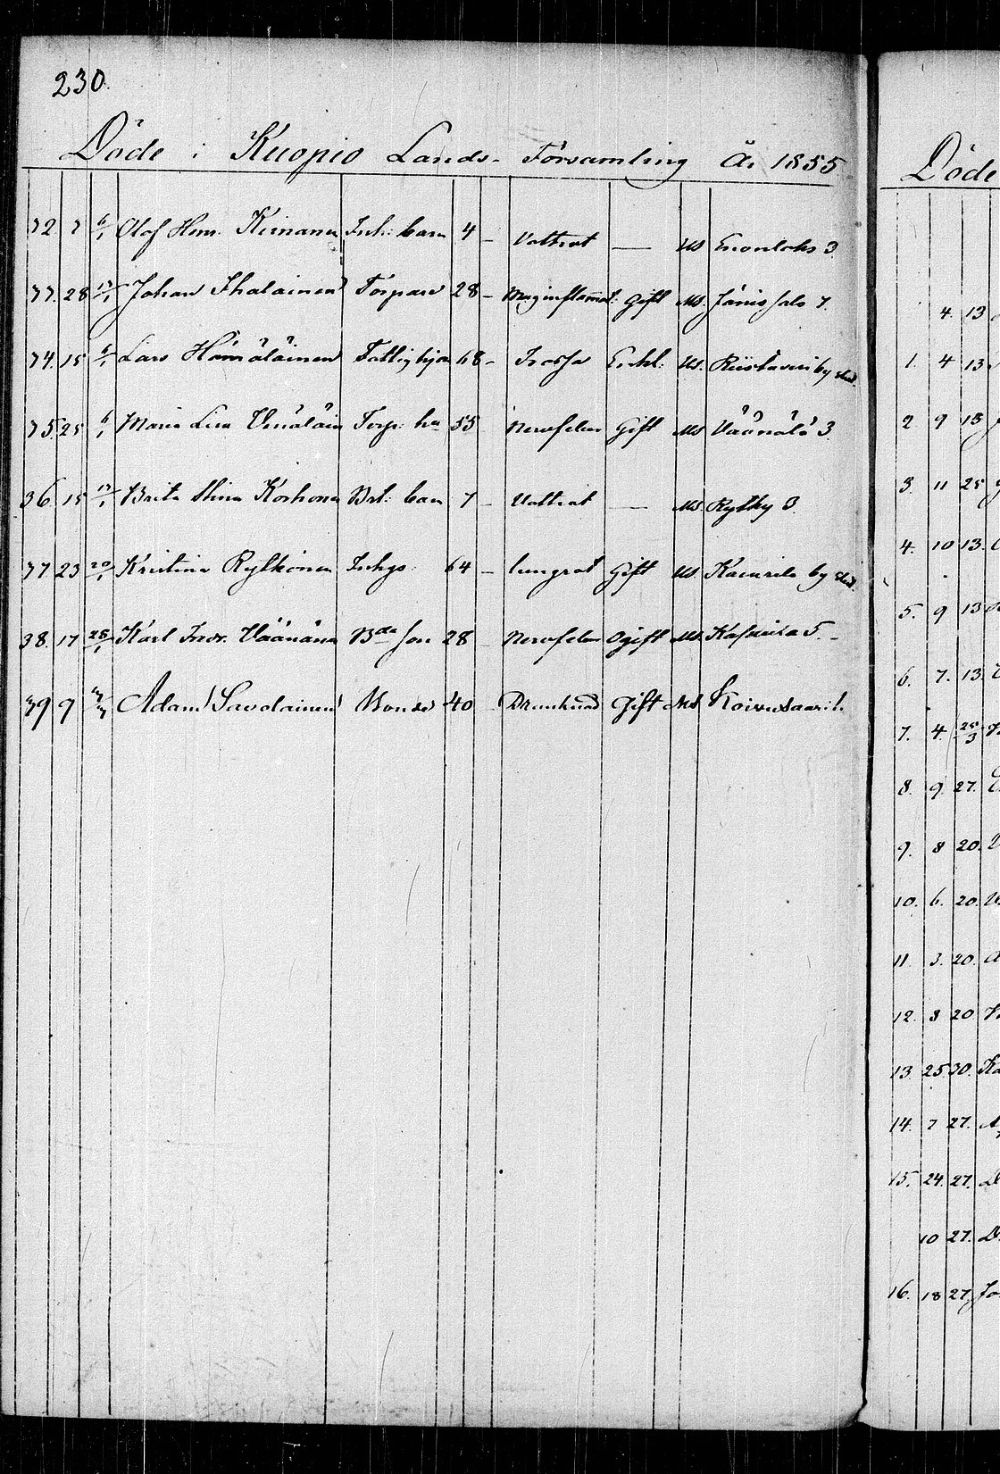 230.
Döde i Kuopio Lands- Församling År 1855
72 7 6/1 Olof Henr. Keinanen Inh: barn 4 - Vattsot — Enonlaks 3
77. 28 Johan Ihalainen Torpare 28 - Maginflamat: Gift Ms. Jänissalo 7.
74. 15 Lars Hämäläinen Fattighjon 68 - Trossju Enkl: Ms. Riistaveri by
75 25 6/1 Maria Lisa Torp: hu 55 Nervfeber Gift Ms Väänälä 3
36 15 Brita Stina Korhonen barn 7 - Vattsot — Ms. Rytky 3
37 23 20/1 Kristina Rytkönen Inhys: 64 - lungsot Gift Ms. by
38. 17 28/1 Karl Fredr. Väänänen Bde Son 28 - Nervfeber Ogift Ms. 5.
39 9 Adam Savolainen Bonde 40 Drunknad Gift Ms Koivusaari 1.
Döde
4. 13
1. 4 13
2 9 13
3. 11 25
4. 10 13.
5. 9 13
6. 7. 13.
7. 4.
8. 9. 27.
9. 8 20.
10. 6. 20.
11. 3. 20.
12. 3 20
13. 25 30.
14. 7 27.
15. 24. 27.
10 27.
16. 18 27.